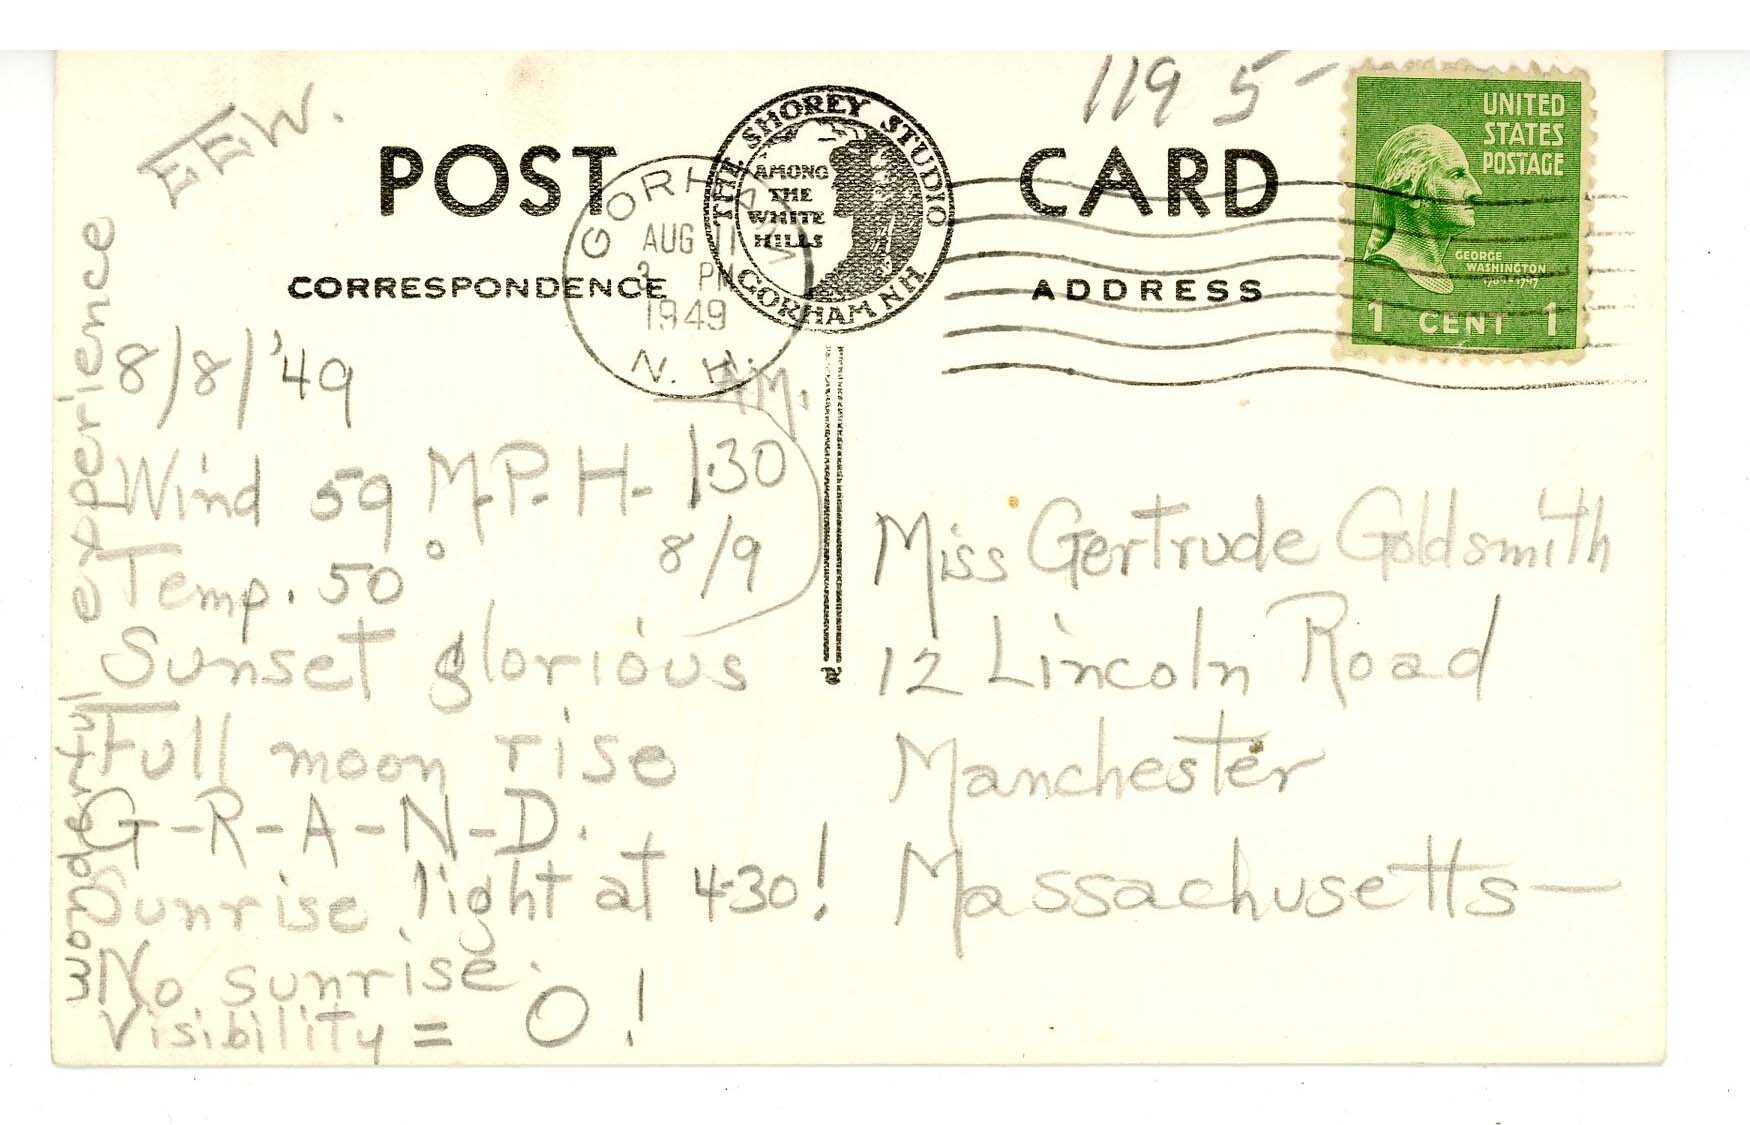 EEW.
119 5-
POST CARD
THE SHOREY STUDIO
AMONG
THE
WHITE
HILLS
GORHAM NH
CORRESPONDENCE
ADDRESS
GORHAM
AUG 11
3 PM
1949
N. H.
UNITED
STATES
POSTAGE
GEORGE
WASHINGTON
1789-1797
1 CENT 1
8/8/'49
A.M.
Wind 59 M.P.H. 1:30
Temp. 50° 8/9
Sunset glorious
Full moon rise
G-R-A-N-D.
Sunrise light at 4:30!
No sunrise.
Visibility = 0!
wonderful experience
Miss Gertrude Goldsmith
12 Lincoln Road
Manchester
Massachusetts—